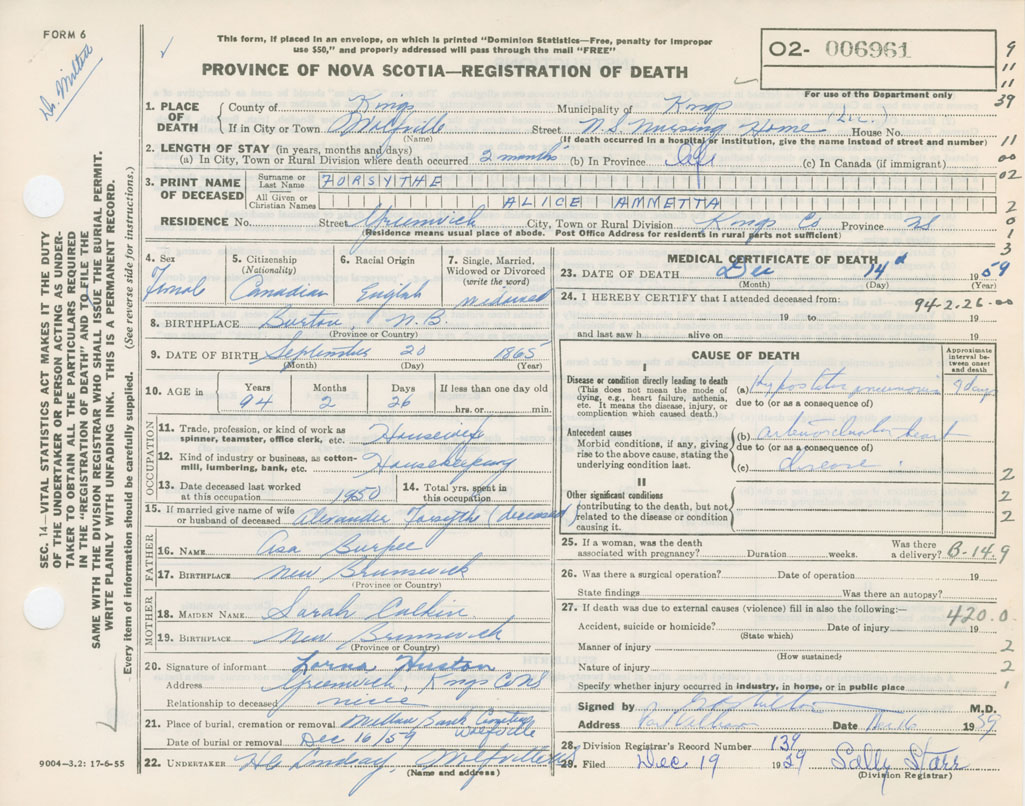 FORM 6
Dr. Milton
This form, if placed in an envelope, on which is printed "Dominion Statistics—Free, penalty for improper
use $50," and properly addressed will pass through the mail "FREE"
PROVINCE OF NOVA SCOTIA—REGISTRATION OF DEATH
O2- 006961
For use of the Department only
9
11
11
39
11
00
02
2
0
1
3
SEC. 14—VITAL STATISTICS ACT MAKES IT THE DUTY
OF THE UNDERTAKER OR PERSON ACTING AS UNDER-
TAKER TO OBTAIN ALL THE PARTICULARS REQUIRED
IN THE "REGISTRATION OF DEATH" AND TO FILE THE
SAME WITH THE DIVISION REGISTRAR WHO SHALL ISSUE THE BURIAL PERMIT.
WRITE PLAINLY WITH UNFADING INK. THIS IS A PERMANENT RECORD.
Every item of information should be carefully supplied. (See reverse side for instructions.)
1. PLACE OF DEATH
County of Kings Municipality of Kings
If in City or Town Wolfville Street N.S. Nursing Home (Lic.) House No.
(Name) (If death occurred in a hospital or institution, give the name instead of street and number)
2. LENGTH OF STAY (in years, months and days)
(a) In City, Town or Rural Division where death occurred 2 months (b) In Province Life (c) In Canada (if immigrant)
3. PRINT NAME OF DECEASED
Surname or Last Name FORSYTHE
All Given or Christian Names ALICE AMMETTA
RESIDENCE No. Street Greenwich City, Town or Rural Division Kings Co Province NS
(Residence means usual place of abode. Post Office Address for residents in rural parts not sufficient)
4. Sex Female
5. Citizenship (Nationality) Canadian
6. Racial Origin English
7. Single, Married, Widowed or Divorced (write the word) widowed
8. BIRTHPLACE Burton, N.B.
(Province or Country)
9. DATE OF BIRTH September 20 1865
(Month) (Day) (Year)
10. AGE in Years 94 Months 2 Days 26 If less than one day old hrs. or min.
OCCUPATION
11. Trade, profession, or kind of work as spinner, teamster, office clerk, etc. Housewife
12. Kind of industry or business, as cotton-mill, lumbering, bank, etc. Housekeeping
13. Date deceased last worked at this occupation 1950
14. Total yrs. spent in this occupation
15. If married give name of wife or husband of deceased Alexander Forsythe (deceased)
FATHER
16. NAME Asa Burpee
17. BIRTHPLACE New Brunswick
(Province or Country)
MOTHER
18. MAIDEN NAME Sarah Calkin
19. BIRTHPLACE New Brunswick
(Province or Country)
20. Signature of informant Lorna Huston
Address Greenwich, Kings Co NS
Relationship to deceased niece
21. Place of burial, cremation or removal Willow Bank Cemetery Wolfville
Date of burial or removal Dec 16/59
22. UNDERTAKER HC Lindsay, Wolfville NS
(Name and address)
9004-3.2: 17-6-55
MEDICAL CERTIFICATE OF DEATH
23. DATE OF DEATH Dec 14 1959
(Month) (Day) (Year)
24. I HEREBY CERTIFY that I attended deceased from:
94-2-26-00
19 to 19
and last saw h alive on 19
CAUSE OF DEATH
Approximate interval between onset and death
I
Disease or condition directly leading to death
(This does not mean the mode of dying, e.g., heart failure, asthenia, etc. It means the disease, injury, or complication which caused death.)
(a) Hypostatic pneumonia 9 days
due to (or as a consequence of)
Antecedent causes
Morbid conditions, if any, giving rise to the above cause, stating the underlying condition last.
(b) arteriosclerotic heart
due to (or as a consequence of)
(c) disease.
II
Other significant conditions
contributing to the death, but not related to the disease or condition causing it.
2
2
2
25. If a woman, was the death associated with pregnancy? Duration weeks. Was there a delivery? B-14.9
26. Was there a surgical operation? Date of operation 19
State findings Was there an autopsy?
27. If death was due to external causes (violence) fill in also the following:—
420.0
Accident, suicide or homicide? Date of injury 19
(State which)
Manner of injury 2
(How sustained)
Nature of injury 2
Specify whether injury occurred in industry, in home, or in public place 1
Signed by M.D.
Address Port Williams Date 1959
28. Division Registrar's Record Number 139
29. Filed Dec 19 1959 Sally Starr
(Division Registrar)